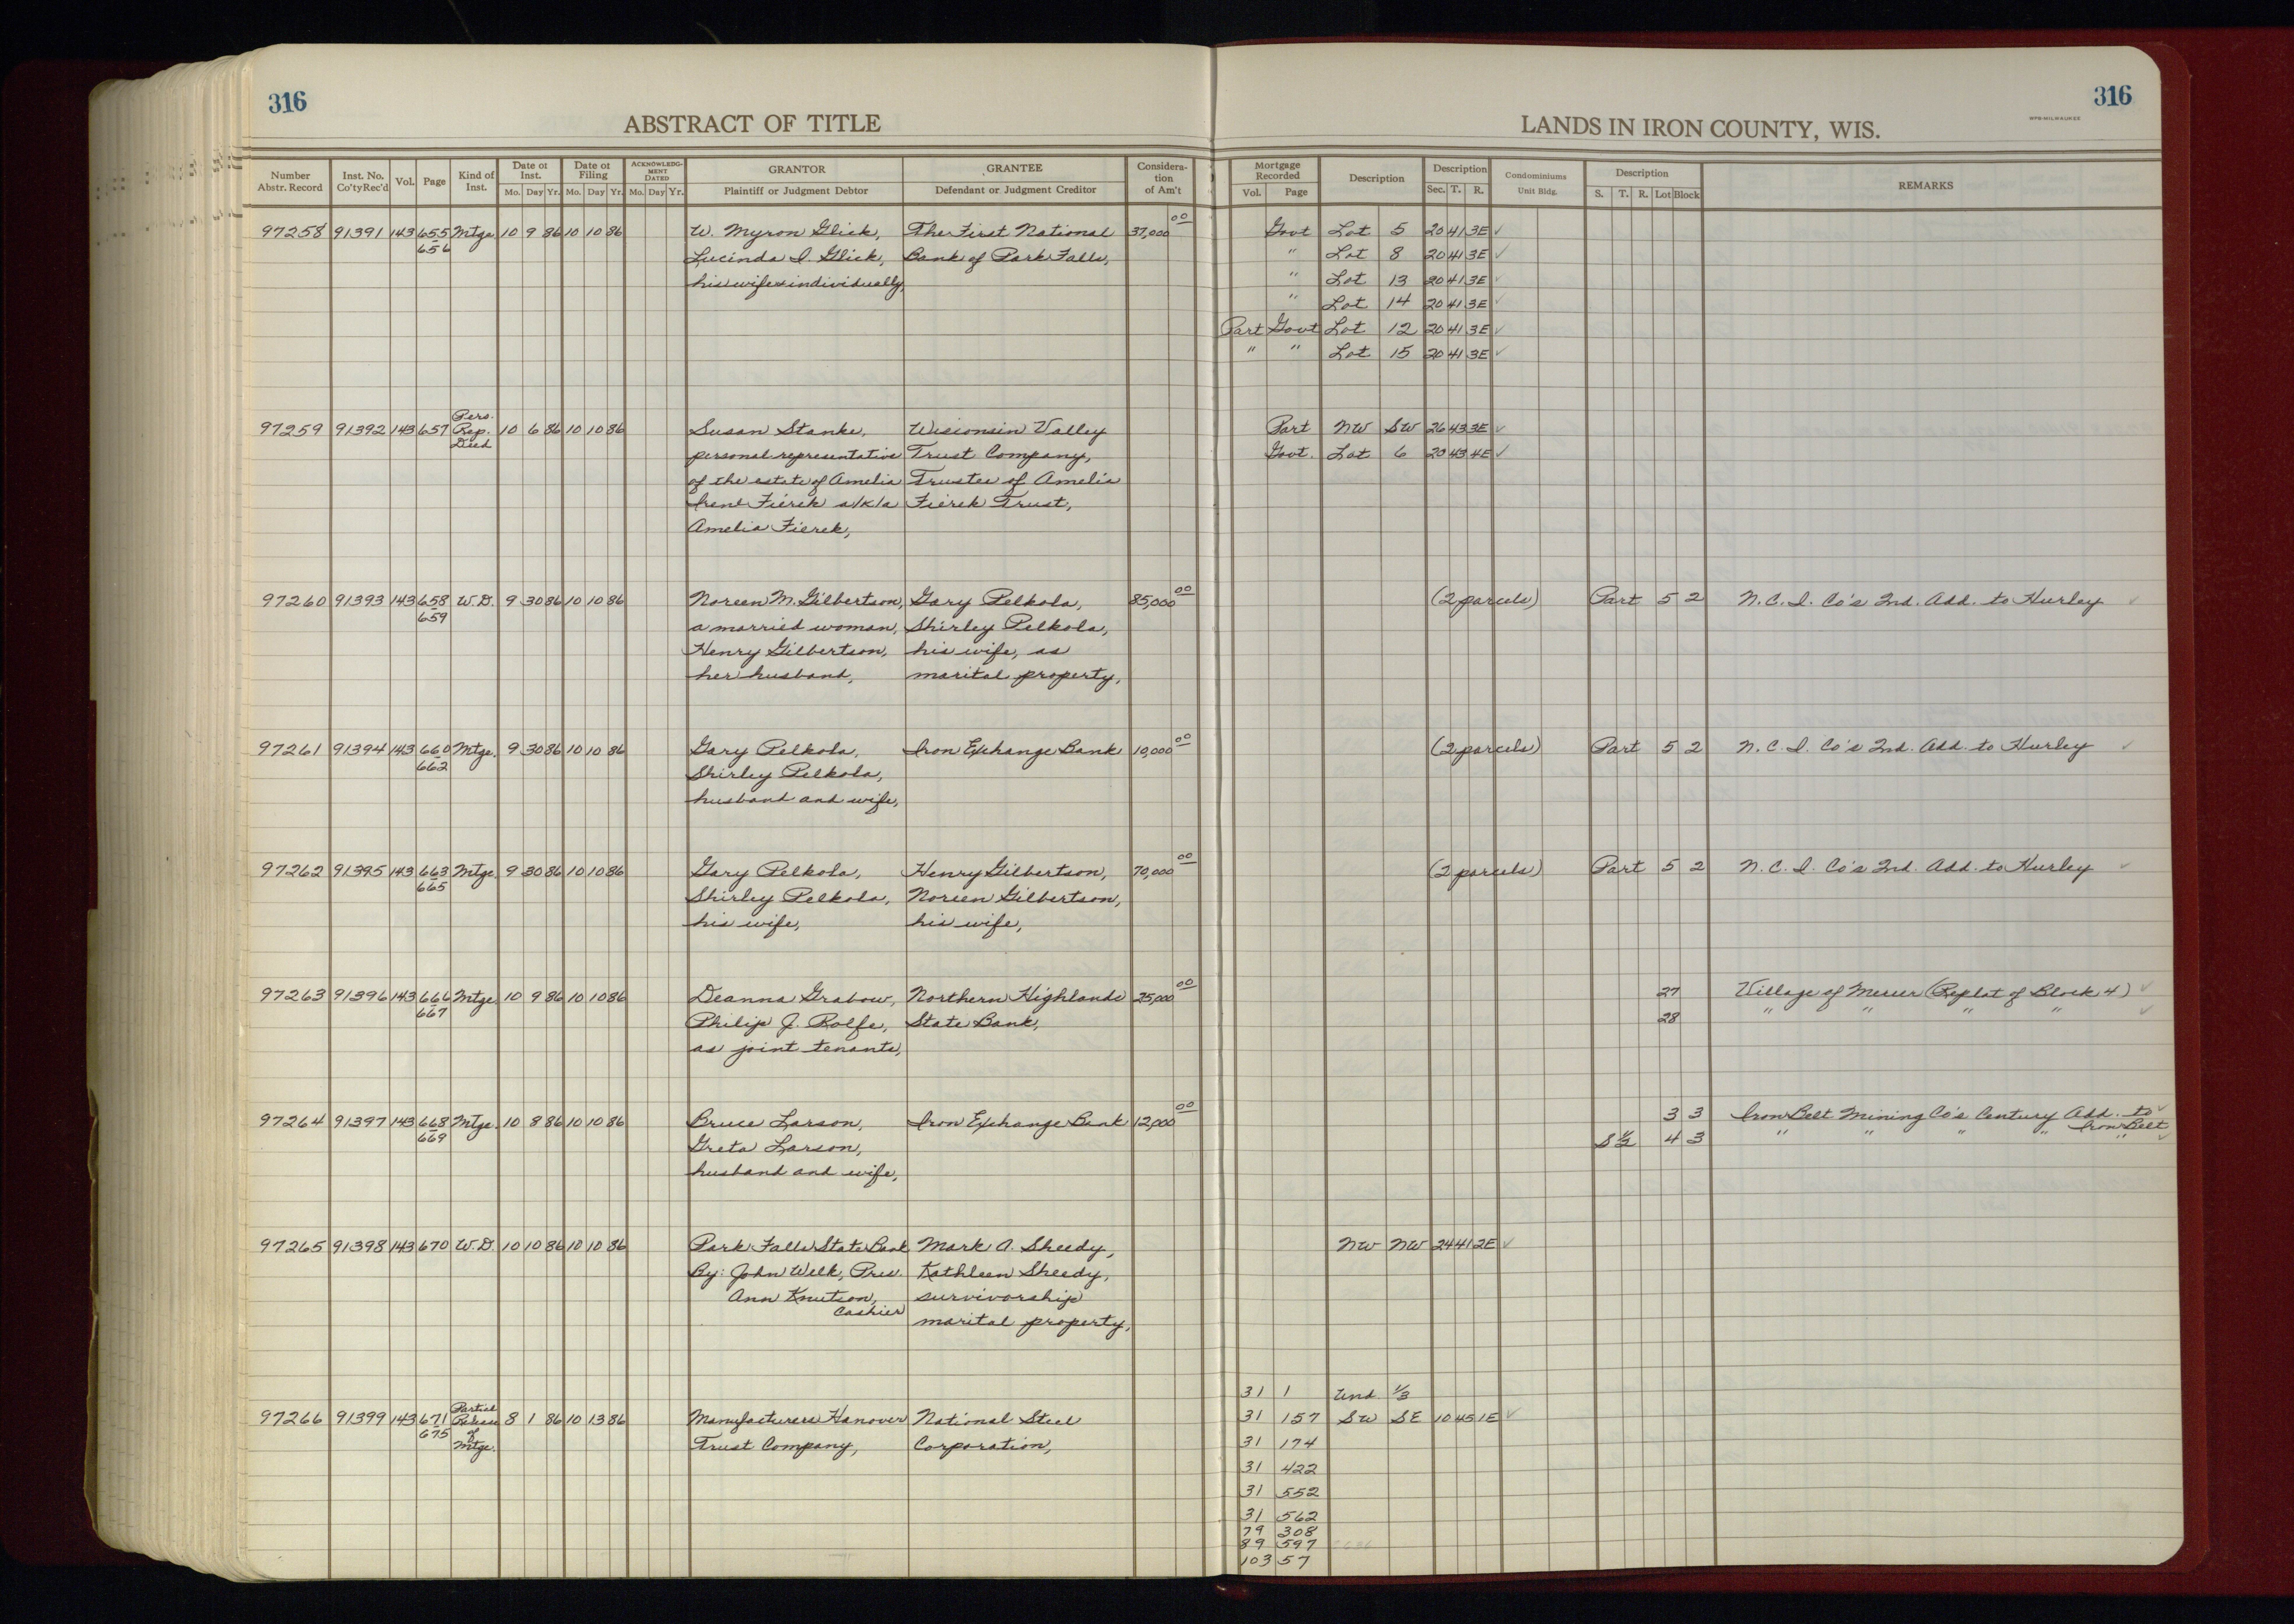 316
ABSTRACT OF TITLE
Number Abstr. Record | Inst. No. Co'ty Rec'd | Vol. | Page | Kind of Inst. | Date of Inst. Mo. Day Yr. | Date of Filing Mo. Day Yr. | ACKNOWLEDGMENT DATED Mo. Day Yr. | GRANTOR Plaintiff or Judgment Debtor | GRANTEE Defendant or Judgment Creditor | Consideration of Am't
316
LANDS IN IRON COUNTY, WIS.
Mortgage Recorded Vol. Page | Description | Description Sec. T. R. | Condominiums Unit Bldg. | Description S. T. R. Lot Block | REMARKS
97258 91391 143 655 Mtge 10 9 86 10 10 86 W. Myron Glick, The First National 37,000 00 Govt Lot 5 20 41 3E ✓
656 Lucinda I. Glick, Bank of Park Falls, " Lot 8 20 41 3E ✓
his wife & individually, " Lot 13 20 41 3E ✓
" Lot 14 20 41 3E ✓
Part Govt Lot 12 20 41 3E ✓
" " Lot 15 20 41 3E ✓
Pers.
97259 91392 143 657 Rep. 10 6 86 10 10 86 Susan Stanke, Wisconsin Valley Part NW SW 26 43 3E ✓
Deed personal representative Trust Company, Govt. Lot 6 20 43 4E ✓
of the estate of Amelia Trustee of Amelia
Irene Fierek a/k/a Fierek Trust,
Amelia Fierek,
97260 91393 143 658 W.D. 9 30 86 10 10 86 Noreen M. Gilbertson, Gary Pelkola, 85,000 00 (2 parcels) Part 5 2 N.C.I. Co's 2nd. Add. to Hurley ✓
659 a married woman, Shirley Pelkola,
Henry Gilbertson, his wife, as
her husband, marital property,
97261 91394 143 660 Mtge. 9 30 86 10 10 86 Gary Pelkola, Iron Exchange Bank 10,000 00 (2 parcels) Part 5 2 N.C.I. Co's 2nd. Add. to Hurley ✓
662 Shirley Pelkola,
husband and wife,
97262 91395 143 663 Mtge. 9 30 86 10 10 86 Gary Pelkola, Henry Gilbertson, 70,000 00 (2 parcels) Part 5 2 N.C.I. Co's 2nd. Add. to Hurley ✓
665 Shirley Pelkola, Noreen Gilbertson,
his wife, his wife,
97263 91396 143 666 Mtge 10 9 86 10 10 86 Deanna Grabow, Northern Highlands 25,000 00 27 Village of Mercer (Replat of Block 4) ✓
667 Philip J. Rolfe, State Bank, 28 " " " " ✓
as joint tenants,
97264 91397 143 668 Mtge. 10 8 86 10 10 86 Bruce Larson, Iron Exchange Bank 12,000 00 3 3 Iron Belt Mining Co's Century Add. to ✓
669 Greta Larson, S½ 4 3 " " " " Iron Belt " ✓
husband and wife,
97265 91398 143 670 W.D. 10 10 86 10 10 86 Park Falls State Bank Mark A. Sheedy, NW NW 24 41 2E ✓
By: John Welk, Pres. Kathleen Sheedy,
Ann Knutson, survivorship
Cashier marital property,
31 1 Und. ⅓
Partial
97266 91399 143 671 Release 8 1 86 10 13 86 Manufacturers Hanover National Steel 31 157 SW SE 10 45 1E ✓
675 of
Mtge. Trust Company, Corporation, 31 174
31 422
31 552
31 562
79 308
89 597
103 57